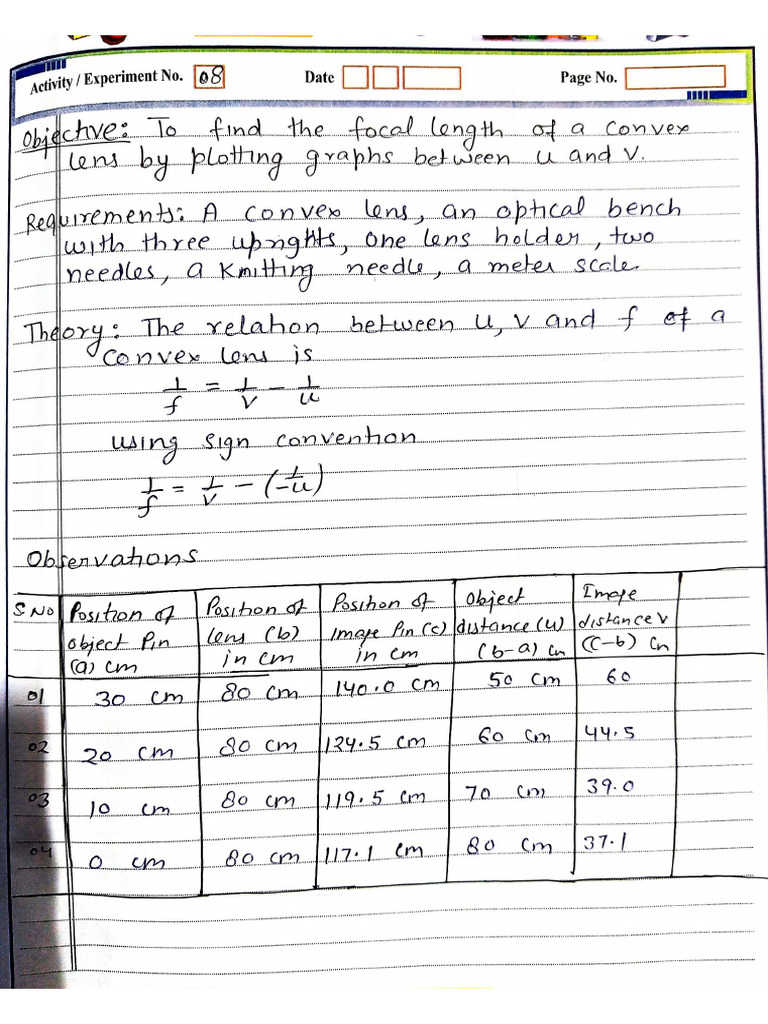 Activity / Experiment No. 08 Date Page No.
Objective: To find the focal length of a convex
lens by plotting graphs between u and v.
Requirements: A convex lens, an optical bench
with three uprights, one lens holder, two
needles, a Knitting needle, a meter scale.
Theory: The relation between u, v and f of a
convex lens is
1/f = 1/v - 1/u
using sign convention
1/f = 1/v - (1/-u)
Observations
S NO | Position of object Pin (a) cm | Position of lens (b) in cm | Position of Image Pin (c) in cm | Object distance (u) (b-a) cm | Image distance v (c-b) cm
01 | 30 cm | 80 cm | 140.0 cm | 50 cm | 60
02 | 20 cm | 80 cm | 124.5 cm | 60 cm | 44.5
03 | 10 cm | 80 cm | 119.5 cm | 70 cm | 39.0
04 | 0 cm | 80 cm | 117.1 cm | 80 cm | 37.1